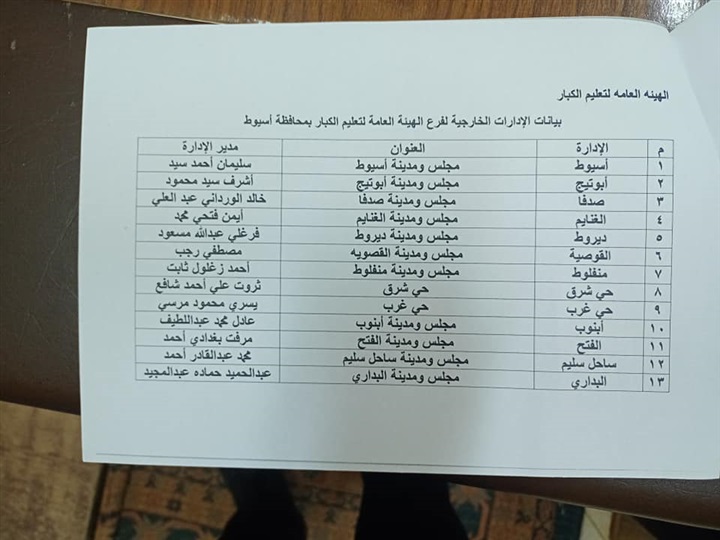 الهيئه العامه لتعليم الكبار
بيانات الإدارات الخارجية لفرع الهيئة العامة لتعليم الكبار بمحافظة أسيوط
م الإدارة العنوان مدير الإدارة
١ أسيوط مجلس ومدينة أسيوط سليمان أحمد سيد
٢ أبوتيج مجلس ومدينة أبوتيج أشرف سيد محمود
٣ صدفا مجلس ومدينة صدفا خالد الورداني عبد العلي
٤ الغنايم مجلس ومدينة الغنايم أيمن فتحي محمد
٥ ديروط مجلس ومدينة ديروط فرغلي عبدالله مسعود
٦ القوصية مجلس ومدينة القصويه مصطفي رجب
٧ منفلوط مجلس ومدينة منفلوط أحمد زغلول ثابت
٨ حي شرق حي شرق ثروت علي أحمد شافع
٩ حي غرب حي غرب يسري محمود مرسي
١٠ أبنوب مجلس ومدينة أبنوب عادل محمد عبداللطيف
١١ الفتح مجلس ومدينة الفتح مرفت بغدادي أحمد
١٢ ساحل سليم مجلس ومدينة ساحل سليم محمد عبدالقادر أحمد
١٣ البداري مجلس ومدينة البداري عبدالحميد حماده عبدالمجيد